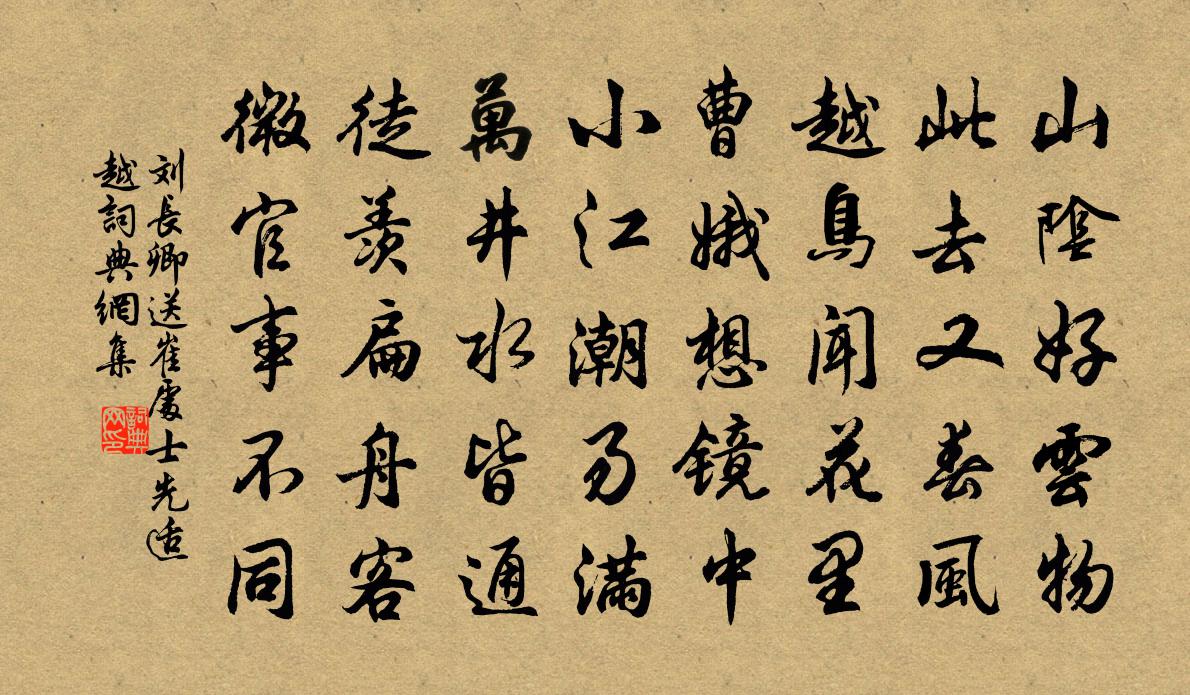 山陰好雲物
此去又春風
越鳥聞花里
曹娥想镜中
小江潮易满
萬井水皆通
徒羡扁舟客
微官事不同
刘長卿送崔處士先适
越詞典網集
詞典网印